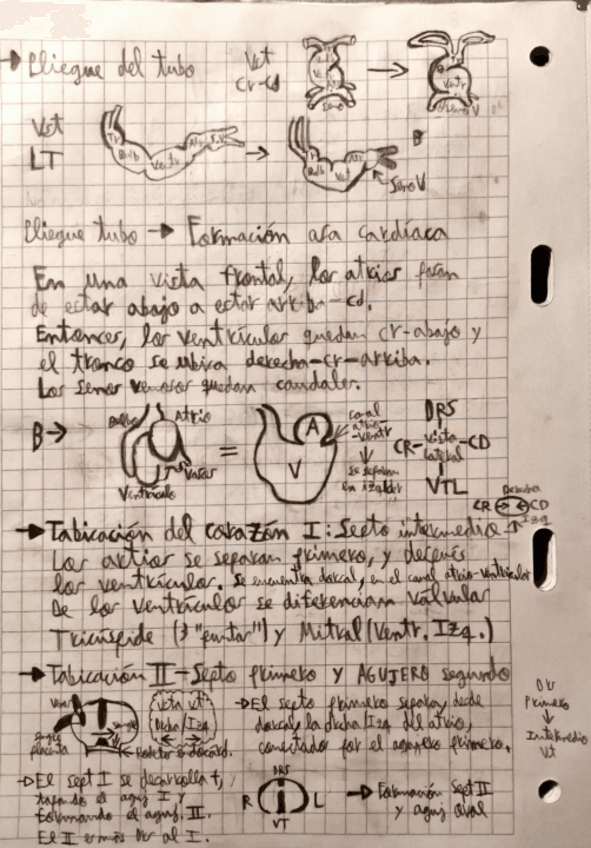 → Pliegue del tubo
Vst
Cr-Cd
Vst
LT
Tr
Bulb
Ventr
→
Bulb
Seno V
B
Pliegue tubo → Formación asa cardíaca
En una vista frontal, los atrios pasan
de estar abajo a estar arriba-cd.
Entonces, los ventrículos quedan cr-abajo y
el tronco se ubica derecha-cr-arriba.
Los senos venosos quedan caudales.
B →
Bulbo
Atrio
Vasos
Ventrículo
=
A
V
canal
atrio
-ventr
↓
se separan
en izq/der
DRS
CR-vista-CD
lateral
VTL
Derecha
CR CD
Izq
→ Tabicación del corazón I: Septo intermedio
Los atrios se separan primero, y después
los ventrículos. Se encuentra dorsal, en el canal atrio-ventricular
De los ventrículos se diferencian válvulas
Tricúspide (3 "puntas") y Mitral (Ventr. Izq.)
→ Tabicación II - Septo primero y AGUJERO segundo
Sangre
placenta
Vista vt
Drcha/Izq
→ El septo primero separa, desde
dorsal, la drcha/izq del atrio,
conectados por el agujero primero.
Dr
Primero
↓
Intermedio
Vt
→ El sept I se desarrolla +,
tapando el aguj I y
formando el aguj. II.
El II es más Dr al I.
DRS
R L
VT
→ Formación Sept II
y aguj oval